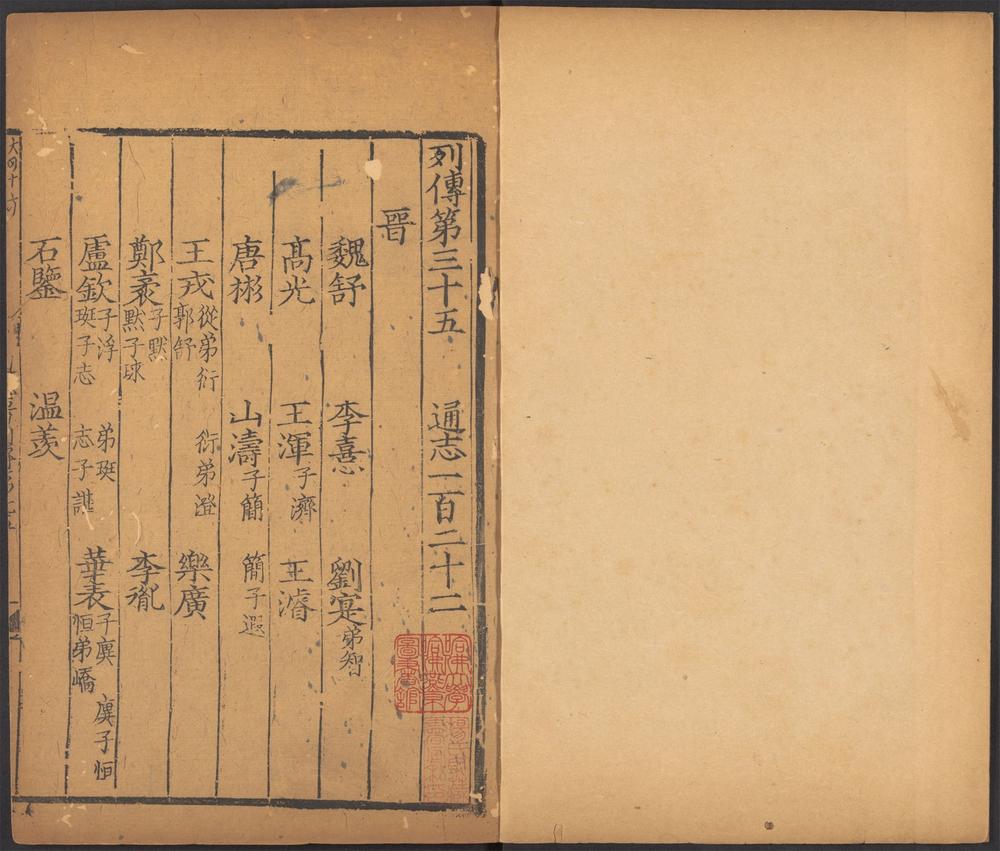 列傳第三十五　通志一百二十二
晉
魏舒　李憙　劉寔弟智
髙光　王渾子濟　王濬
唐彬　山濤子簡　簡子遐
王戎從弟衍　衍弟澄　郭舒　樂廣
鄭袤子默　默子球　李胤
盧欽子浮　弟珽　珽子志　志子諶　華表子廙　廙子恒　恒弟嶠
石鑒　温羨